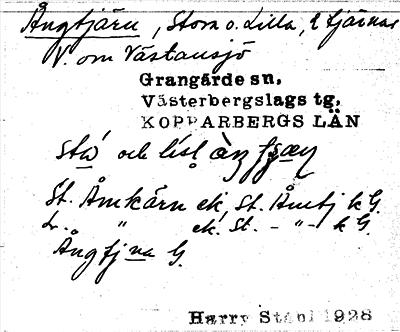 Ångtjärn, Stora o. Lilla, 2 tjärnar
V. om Västansjö
Grangärde sn,
Västerbergslags tg,
KOPPARBERGS LÄN
och
St. Åmkärn ek. St. Åmtj k G.
" ek. St. - " - k G.
Ångtj G.
Harry Ståhl 1928